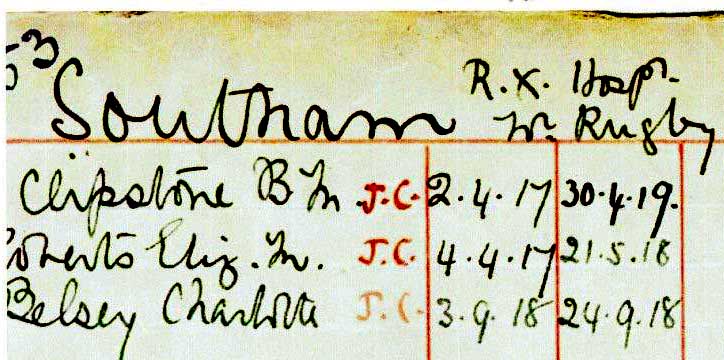 53
Southam R.X. Hospl.
Nr. Rugby
Clipstone B M J.C. 2.4.17 30.4.19.
Roberts Eliz. M. J.C. 4.4.17 21.5.18
Belsey Charlotte J.C. 3.9.18 24.9.18